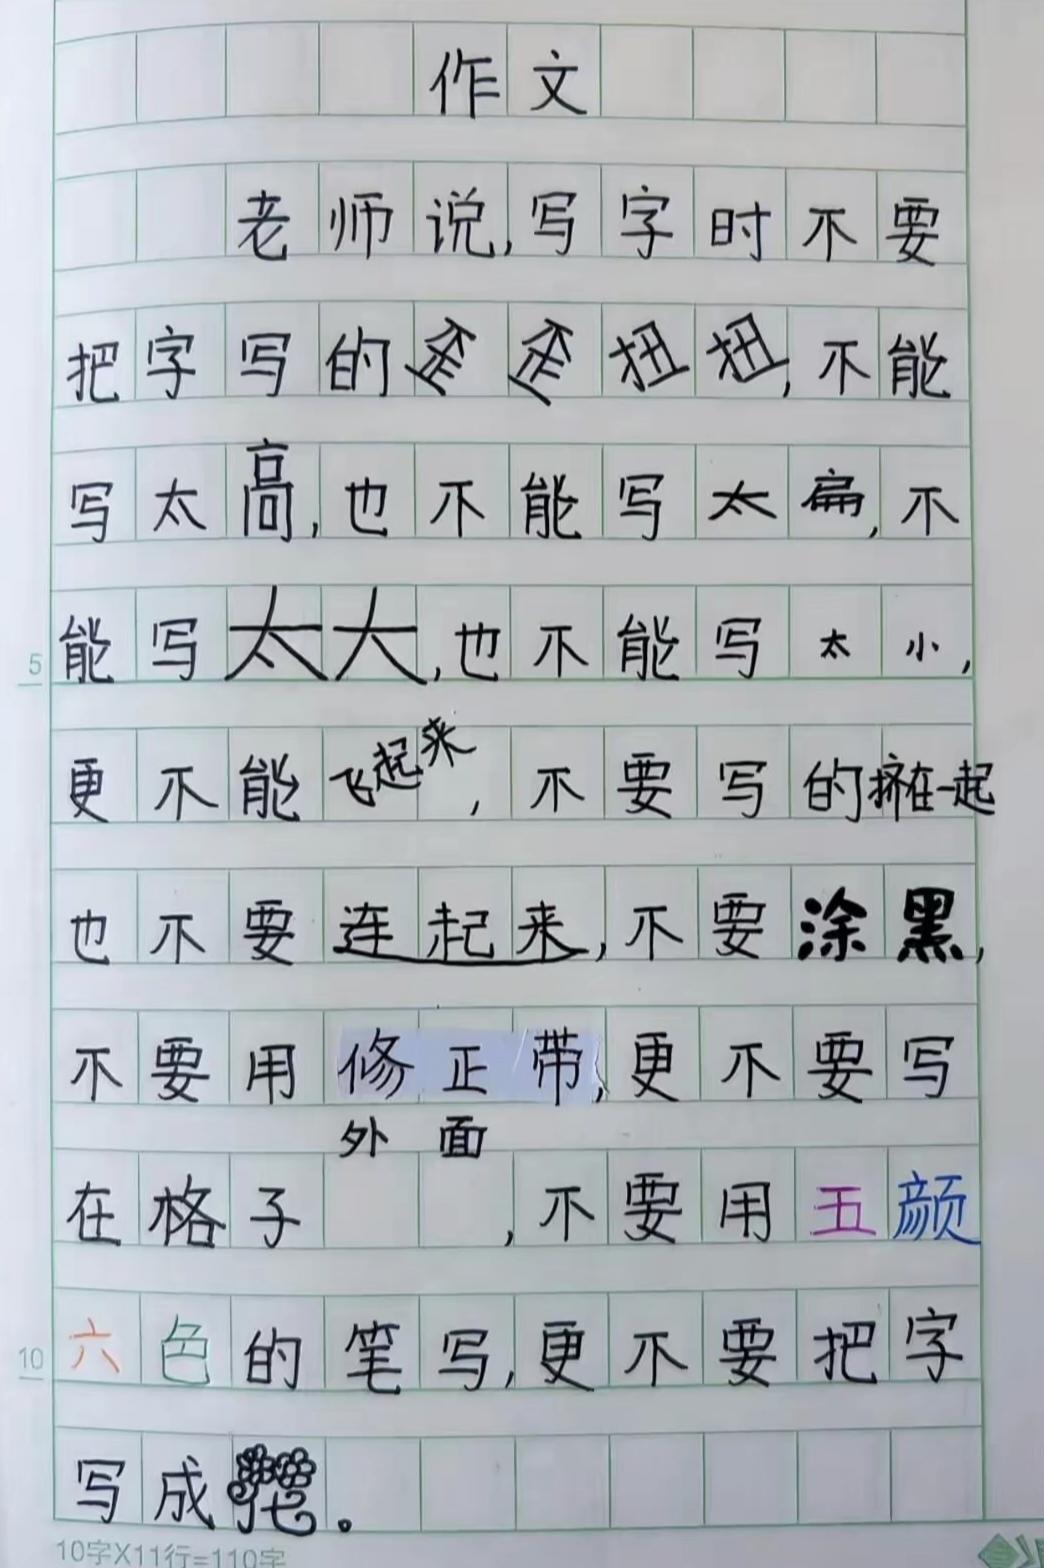 作文
老师说,写字时不要
把字写的歪歪扭扭,不能
写太高,也不能写太扁,不
5
能写太大,也不能写太小,
更不能飞起来,不要写的挤在一起
也不要连起来,不要涂黑,
不要用修正带,更不要写
在格子外面,不要用五颜
10
六色的笔写,更不要把字
写成花。
10字X11行=110字